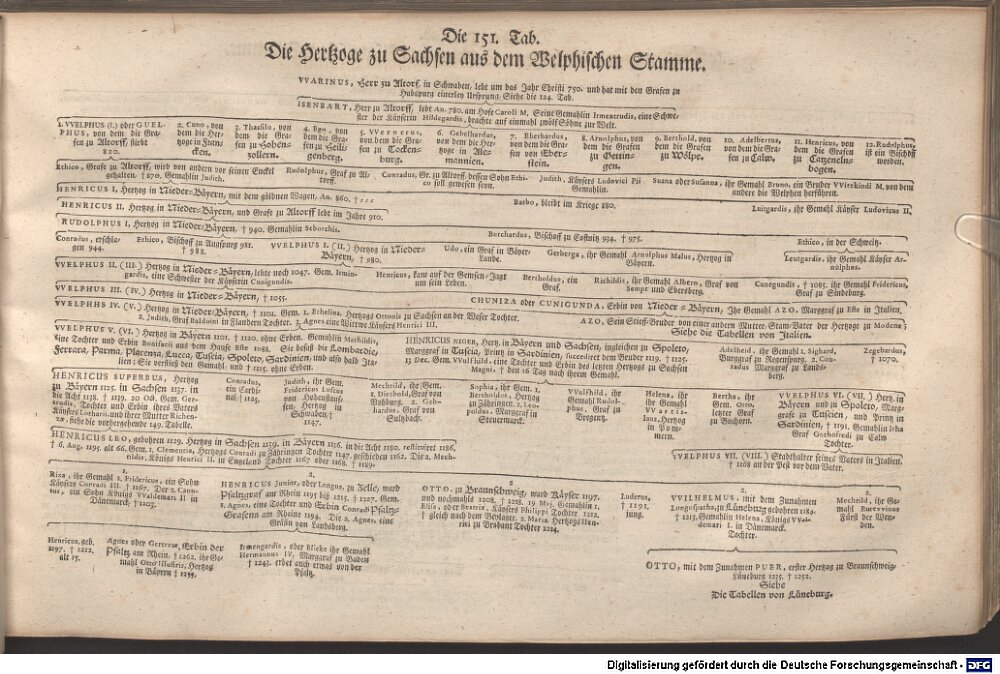 Die 151. Tab.
Die Hertzoge zu Sachsen aus dem Welphischen Stamme.
VVARINUS, Herr zu Altorf, in Schwaben, lebt um das Jahr Christi 750. und hat mit den Grafen zu
Habspurg einerley Ursprung. Siehe die 124. Tab.
ISENBART, Herr zu Altorff, lebt An. 780. am Hofe Caroli M. Seine Gemahlin Irmentrudis, eine Schwe-
ster der Käyserin Hildegardis, brachte auf einmahl zwölf Söhne zur Welt.
1. VVELPHUS (I.) oder GUEL-
PHUS, von dem die Gra-
fen zu Altorff, stirbt
820.
2. Cuno, von
dem die Her-
tzoge in Fran-
cken.
3. Thassilo, von
dem die Gra-
fen zu Hohen-
zollern.
4. Ego, von
dem die Gra-
fen zu Heili-
genberg.
5. VVernerus,
von dem die Gra-
fen zu Tocken-
burg.
6. Gebelhardus,
von dem die Her-
tzoge in Ale-
mannien.
7. Eberhardus,
von dem die Gra-
fen von Eber-
stein.
8. Arnolphus, von
dem die Grafen
zu Oettin-
gen.
9. Berthold, von
dem die Grafen
zu Wölpe.
10. Adelbertus,
von dem die Gra-
fen zu Calw.
11. Henricus, von
dem die Grafen
zu Catzeneln-
bogen.
12. Rudolphus,
ist ein Bischoff
worden.
Ethico, Grafe zu Altorff, wird von andern vor seinen Enckel
gehalten, † 870. Gemahlin Judith.
Rudolphus, Graf zu Al-
torff.
Conradus, Gr. zu Altorff, dessen Sohn Ethi-
co soll gewesen seyn.
Judith, Käysers Ludovici Pii
Gemahlin.
Suana oder Susanna, ihr Gemahl Bruno, ein Bruder VVitekindi M. von dem
andere die Welphen herführen.
HENRICUS I. Hertzog in Nieder-Bäyern, mit dem göldnen Wagen, An. 860. † ...
Barbo, bleibt im Kriege 880.
Luitgardis, ihr Gemahl Käyser Ludovicus II.
HENRICUS II. Hertzog in Nieder-Bäyern, und Grafe zu Altorff lebt im Jahre 910.
RUDOLPHUS I. Hertzog in Nieder-Bäyern, † 940. Gemahlin Seborchis.
Burchardus, Bischoff zu Costnitz 994. † 975.
Ethico, in der Schweitz.
Conradus, erschla-
gen 944.
Ethico, Bischoff zu Augspurg 981.
† 988.
VVELPHUS I. (II.) Hertzog in Nieder-
Bäyern, † 980.
Udo, ein Graf in Bäyer-
Lande.
Gerberga, ihr Gemahl Arnolphus Malus, Hertzog in
Bäyern.
Leutgardis, ihr Gemahl Käyser Ar-
nolphus.
VVELPHUS II. (III.) Hertzog in Nieder-Bäyern, lebte noch 1047. Gem. Irmin-
gardis, eine Schwester der Käyserin Cunigundis.
Henricus, kam auf der Gemsen-Jagt
um sein Leben.
Bertholdus, ein
Graf.
Richildis, ihr Gemahl Albero, Graf von
Sempt und Ebersberg.
Cunegundis, † 1085. ihr Gemahl Fridericus,
Graf zu Sindeburg.
VVELPHUS III. (IV.) Hertzog in Nieder-Bäyern, † 1055.
CHUNIZA oder CUNIGUNDA, Erbin von Nieder-Bäyern, Ihr Gemahl AZO, Marggraf zu Este in Italien.
VVELPHS IV. (V.) Hertzog in Nieder-Bäyern, † 1101. Gem. 1. Ethelina, Hertzogs Ottonis zu Sachsen an der Weser Tochter.
2. Judith, Graf Balduini in Flandern Tochter. 3. Agnes eine Wittwe Käysers Henrici III.
AZO, Sein Stieff-Bruder von einer andern Mutter, Stam-Vater der Hertzoge zu Modena;
Siehe die Tabellen von Italien.
VVELPHUS V. (VI.) Hertzog in Bäyern 1101. † 1120. ohne Erben. Gemahlin Mathildis,
eine Tochter und Erbin Bonifacii aus dem Hause Este 1088. Sie besaß die Lombardie,
Ferrara, Parma, Placenza, Lucca, Tuscia, Spoleto, Sardinien, und also halb Ita-
lien; Sie verließ den Gemahl, und † 1115. ohne Erben.
HENRICUS NIGER, Hertz. in Bäyern und Sachsen, ingleichen zu Spoleto,
Marggraf in Tuscia, Printz in Sardinien, succediret dem Bruder 1119. † 1125.
13 Dec. Gem. VVulfhild, eine Tochter und Erbin des letzten Hertzogs zu Sachsen
Magni, † den 16 Tag nach ihrem Gemahl.
Adelheid, ihr Gemahl 1. Sighard,
Burggraf zu Regenspurg. 2. Con-
radus Marggraf zu Lands-
berg.
Zegebardus,
† 1070.
HENRICUS SUPERBUS, Hertzog
zu Bäyern 1125. in Sachsen 1137. in
die Acht 1138. † 1139. 20 Oct. Gem. Ger-
trudis, Tochter und Erbin ihres Vaters
Käysers Lotharii und ihrer Mutter Richen-
zæ, siehe die vorhergehende 149. Tabelle.
Conradus,
ein Cardi-
nal, † 1125.
Judith, ihr Gem.
Fridericus Luscus
von Hohenstauf-
fen, Hertzog in
Schwaben †
1147.
Mechtild, ihr Gem.
1. Dietbold, Graf von
Vohburg. 2. Geb-
hardus, Graf von
Sultzbach.
Sophia, ihr Gem. 1.
Bertholdus, Hertzog
zu Zäringen, 2. Leo-
poldus, Marggraf in
Steuermarck.
VVulfhild, ihr
Gemahl Rudol-
phus, Graf zu
Bregentz.
Helena, ihr
ihr Gemahl
VVartis-
laus, Hertzog
in Pom-
mern.
Bertha, ihr
Gem. Otto,
letzter Graf
zu Buchorn.
VVELPHUS VI. (VII.) Hertz. in
Bäyern und zu Spoleto, Marg-
grafe zu Tuscien, und Printz in
Sardinien, † 1191. Gemahlin Utha
Graf Gothofredi zu Calw
Tochter.
HENRICUS LEO, gebohren 1129. Hertzog in Sachsen 1139. in Bäyern 1156. in die Acht 1180. restituiret 1186.
† 6. Aug. 1195. alt 66. Gem. 1. Clementia, Hertzogs Conradi zu Zähringen Tochter 1147. geschieden 1162. Die 2. Mech-
tildis, Königs Henrici II. in Engeland Tochter 1167 oder 1168. † 1189.
VVELPHUS VII. (VIII.) Statthalter seines Vaters in Italien,
† 1168 an der Pest vor dem Vater.
1.
Rixa, ihr Gemahl 1. Fridericus, ein Sohn
Käysers Conradi III. † 1167. Der 2. Canu-
tus, ein Sohn Königs VValdemari II in
Dänemarck, † 1203.
2.
HENRICUS Junior, oder Longus, zu Zelle, ward
Pfaltzgraf am Rhein 1195 biß 1215. † 1227. Gem.
1. Agnes, eine Tochter und Erbin Conradi Pfaltz-
Grafens am Rheine 1194. Die 2. Agnes, eine
Gräfin von Landsberg.
2
OTTO, zu Braunschweig, ward Käyser 1197.
und nochmahls 1208. † 1218. 19 Maj. Gemahlin 1.
Elisa, oder Beatrix, Käysers Philippi Tochter 1212.
† gleich nach dem Beylager. 2. Maria Hertzogs Hen-
rici zu Brabant Tochter 1214.
Luderus,
† 1191.
jung.
2.
VVILHELMUS, mit dem Zunahmen
Longespatha, zu Lüneburg gebohren 1184.
† 1213. Gemahlin Helena, Königs VVal-
demari I. in Dänemarck,
Tochter.
2.
Mechild, ihr Ge-
mahl Burevvinus
Fürst der Wen-
den.
Henricus, geb.
1197. † 1212.
alt 15.
Agnes oder Gertrut, Erbin der
Pfaltz am Rhein. † 1262. ihr Ge-
mahl Otto Illustris, Hertzog
in Bäyern † 1253.
Irmengardis, oder Eliicke ihr Gemahl
Hermannus IV. Marggraf zu Baden
† 1243. erbet auch etwas von der
Pfaltz.
OTTO, mit dem Zunahmen PUER, erster Hertzog zu Braunschweig-
Lüneburg 1235. † 1252.
Siehe
Die Tabellen von Lüneburg.
Digitalisierung gefördert durch die Deutsche Forschungsgemeinschaft - DFG